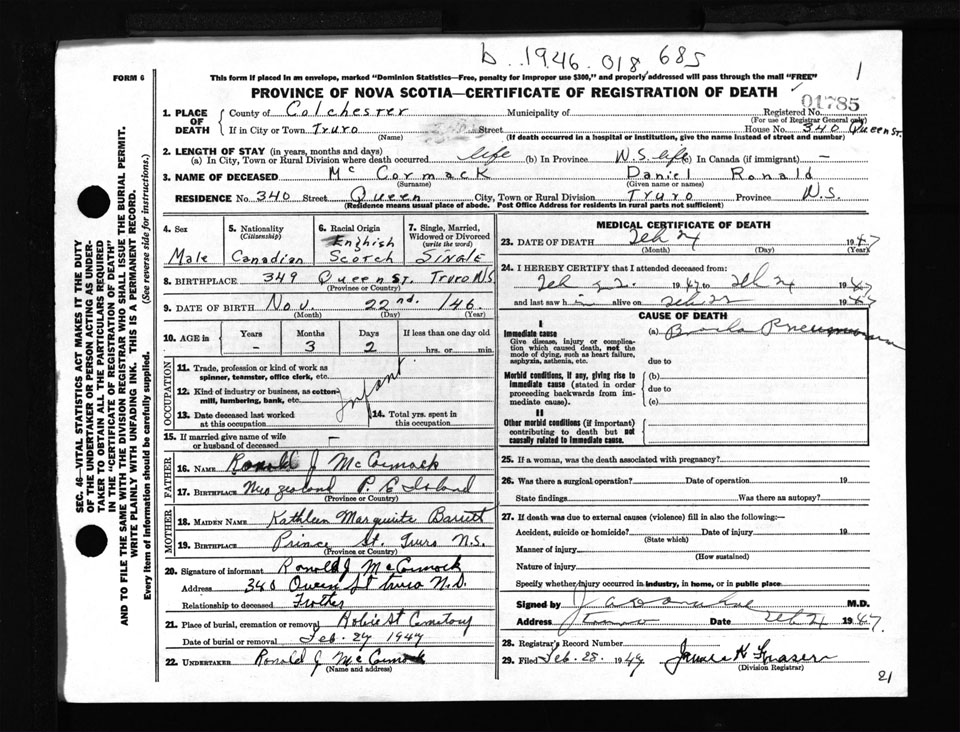 b. 1946.018,685
1
FORM 6
This form if placed in an envelope, marked "Dominion Statistics—Free, penalty for improper use $300," and properly addressed will pass through the mail "FREE"
PROVINCE OF NOVA SCOTIA—CERTIFICATE OF REGISTRATION OF DEATH
1. PLACE OF DEATH
County of Colchester Municipality of Registered No. 01785
(For use of Registrar General only)
If in City or Town Truro Street House No. 340 Queen St.
(Name) (If death occurred in a hospital or institution, give the name instead of street and number)
2. LENGTH OF STAY (in years, months and days)
(a) In City, Town or Rural Division where death occurred life (b) In Province N.S. life (c) In Canada (if immigrant) —
3. NAME OF DECEASED Mc Cormack Daniel Ronald
(Surname) (Given name or names)
RESIDENCE No. 340 Street Queen City, Town or Rural Division Truro Province N.S.
(Residence means usual place of abode. Post Office Address for residents in rural parts not sufficient)
4. Sex Male
5. Nationality (Citizenship) Canadian
6. Racial Origin English Scotch
7. Single, Married, Widowed or Divorced (write the word) SINGLE
8. BIRTHPLACE 349 Queen St. Truro N.S.
(Province or Country)
9. DATE OF BIRTH Nov. 22nd. 146.
(Month) (Day) (Year)
10. AGE in Years Months Days If less than one day old
- 3 2 hrs. or min.
OCCUPATION
11. Trade, profession or kind of work as spinner, teamster, office clerk, etc.
12. Kind of industry or business, as cotton-mill, lumbering, bank, etc.
Infant
13. Date deceased last worked at this occupation
14. Total yrs. spent in this occupation
15. If married give name of wife or husband of deceased —
FATHER
16. NAME Ronald J McCormack
17. BIRTHPLACE New Zealand P. E Island
(Province or Country)
MOTHER
18. MAIDEN NAME Kathleen Marguite Barrett
19. BIRTHPLACE Prince St. Truro N.S.
(Province or Country)
20. Signature of informant Ronald J McCormack
Address 340 Queen St Truro N.S.
Relationship to deceased Father
21. Place of burial, cremation or removal Robie St Cemetery
Date of burial or removal Feb. 27 1947
22. UNDERTAKER Ronald J McCormack
(Name and address)
MEDICAL CERTIFICATE OF DEATH
23. DATE OF DEATH Feb 24 1947
(Month) (Day) (Year)
24. I HEREBY CERTIFY that I attended deceased from:
Feb 22 1947 to Feb 24 1947
and last saw him alive on Feb 22 1947
CAUSE OF DEATH
I
Immediate cause
Give disease, injury or complication which caused death, not the mode of dying, such as heart failure, asphyxia, asthenia, etc.
(a) Broncho Pneumonia
due to
Morbid conditions, if any, giving rise to immediate cause (stated in order proceeding backwards from immediate cause).
(b)
due to
(c)
II
Other morbid conditions (if important) contributing to death but not causally related to immediate cause.
25. If a woman, was the death associated with pregnancy?
26. Was there a surgical operation? Date of operation 19
State findings Was there an autopsy?
27. If death was due to external causes (violence) fill in also the following:—
Accident, suicide or homicide? Date of injury 19
(State which)
Manner of injury
(How sustained)
Nature of injury
Specify whether injury occurred in industry, in home, or in public place
Signed by M.D.
Address Truro Date Feb 24 1947
28. Registrar's Record Number
29. Filed Feb. 28. 1947 James H Fraser
(Division Registrar)
21
SEC. 46—VITAL STATISTICS ACT MAKES IT THE DUTY
OF THE UNDERTAKER OR PERSON ACTING AS UNDER-
TAKER TO OBTAIN ALL THE PARTICULARS REQUIRED
IN THE "CERTIFICATE OF REGISTRATION OF DEATH"
AND TO FILE THE SAME WITH THE DIVISION REGISTRAR WHO SHALL ISSUE THE BURIAL PERMIT.
WRITE PLAINLY WITH UNFADING INK. THIS IS A PERMANENT RECORD.
Every item of information should be carefully supplied. (See reverse side for instructions.)